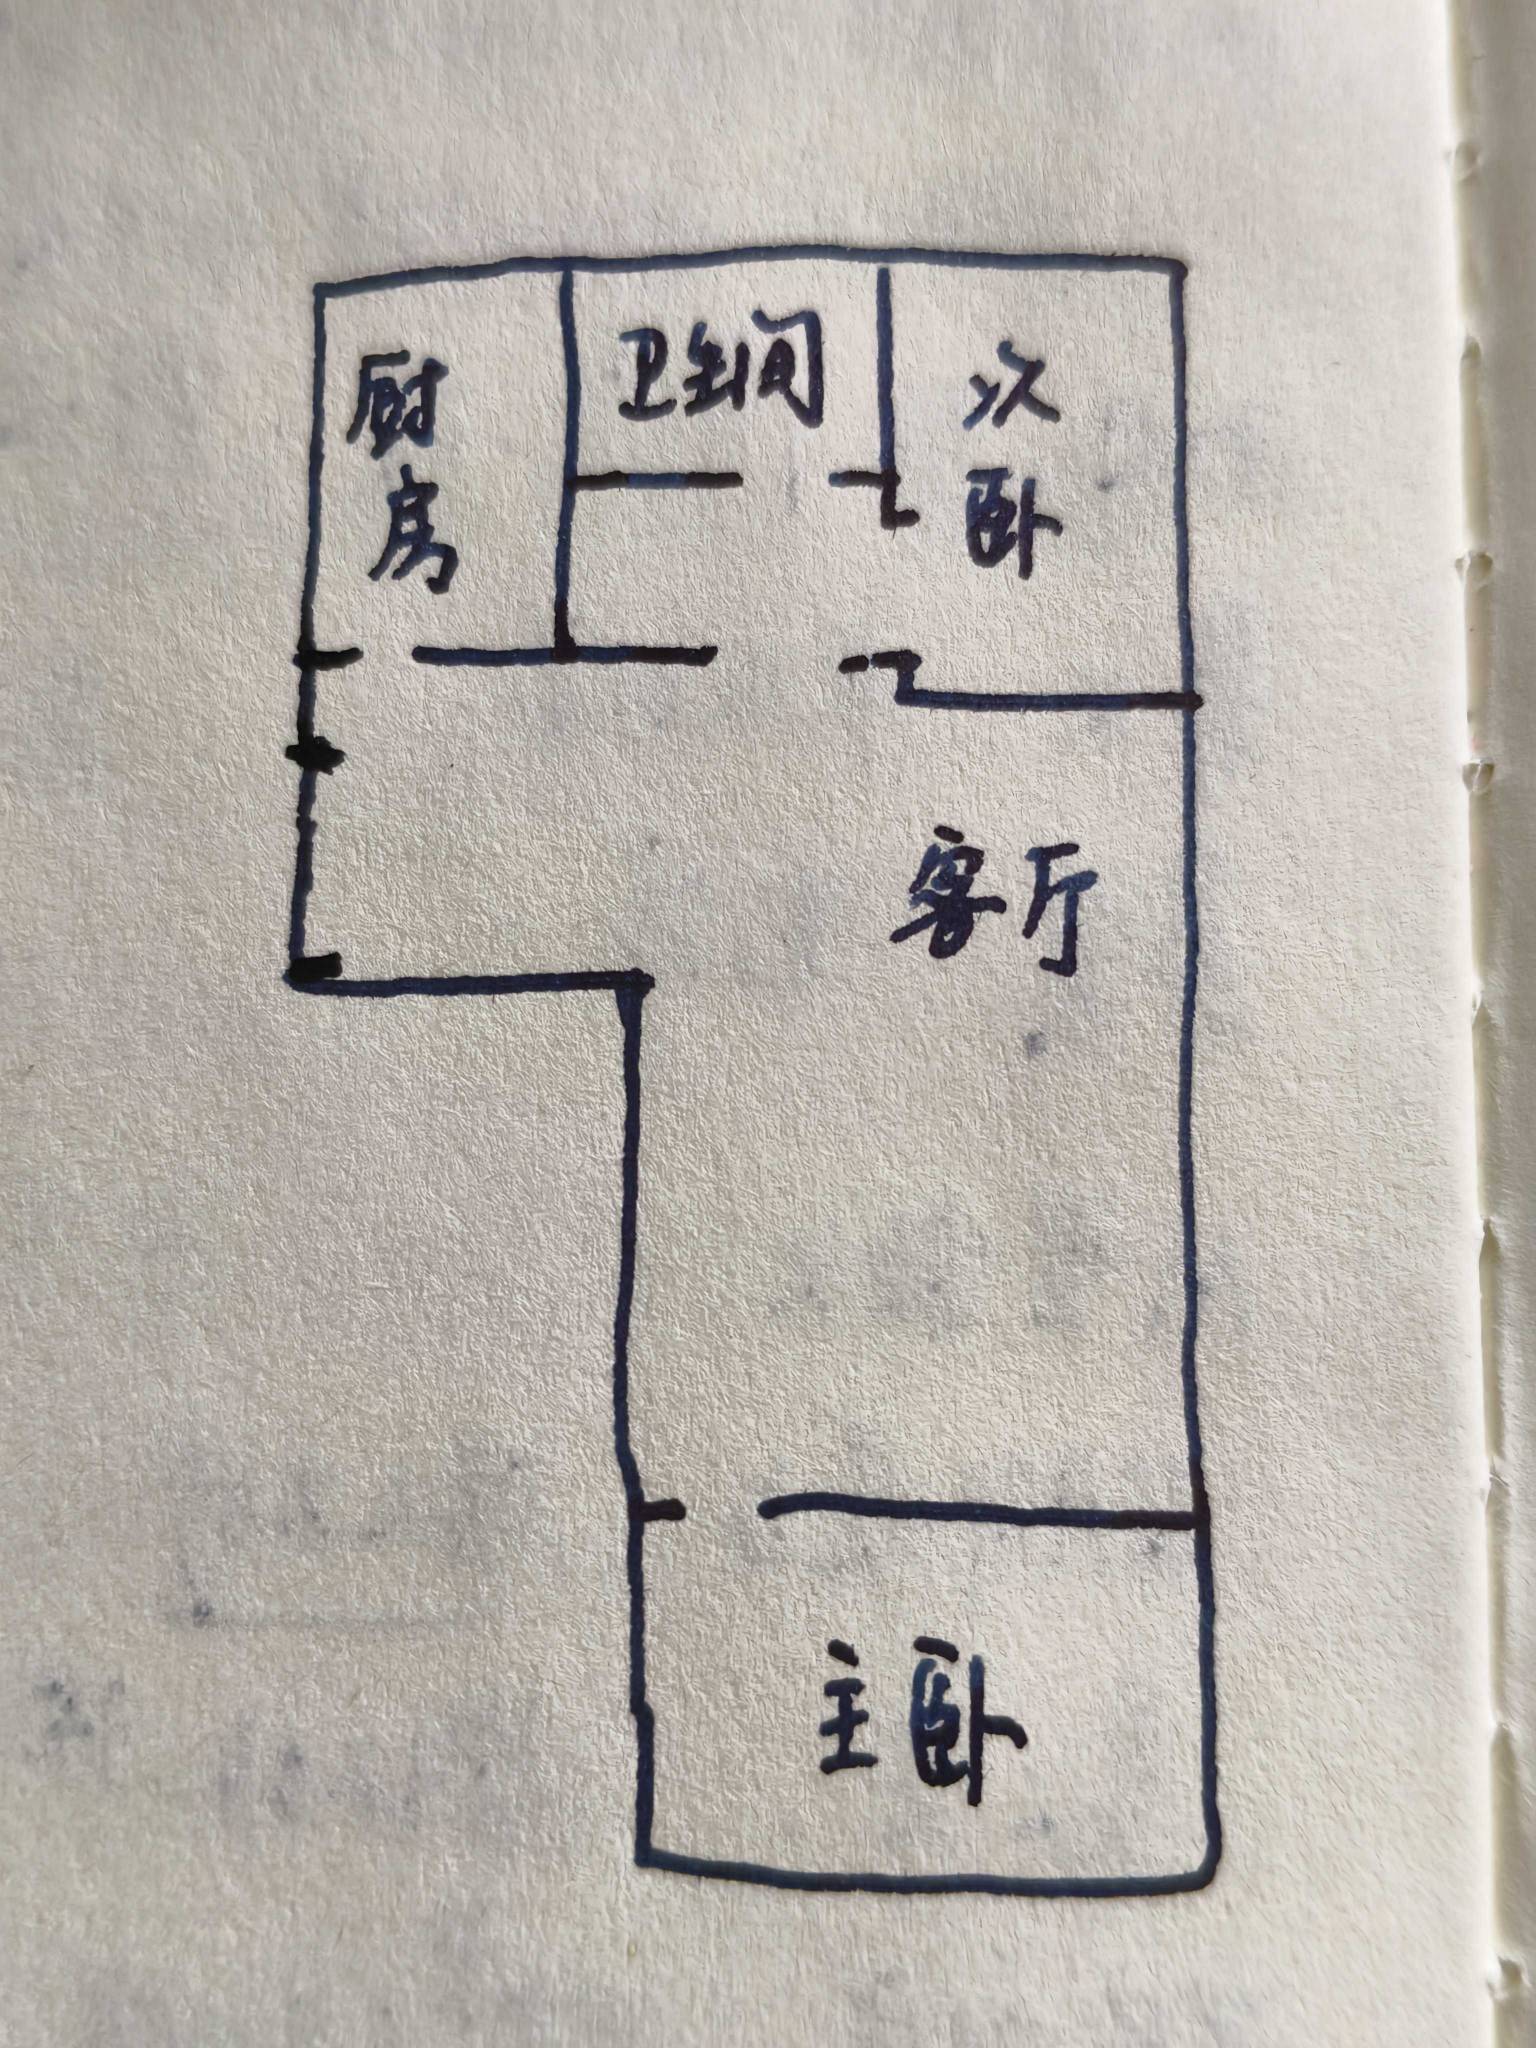 厨房
卫生间
次卧
客厅
主卧